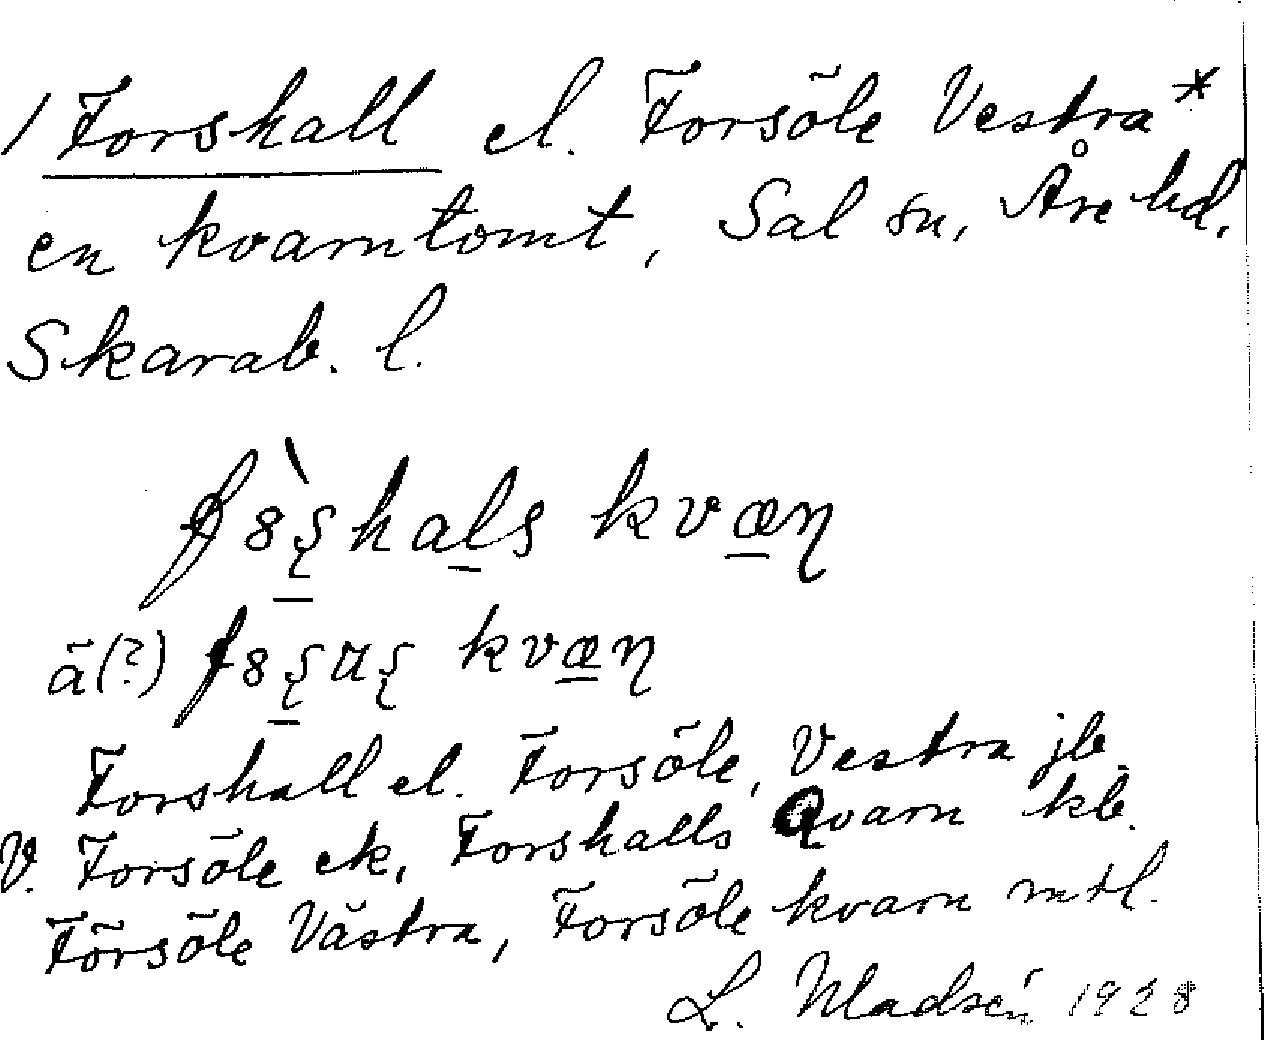 / Forshall el. Forsöle Vestra*
en kvarntomt, Sal sn, Åre hd.
Skarab. l.
kvæɳ
ä(?) kvæɳ
Forshall el. Forsöle, Vestra jb.
V. Forsöle ek, Forshalls Qvarn kb.
Försöle Västra, Forsöle kvarn mtl.
L. Madsén 1928